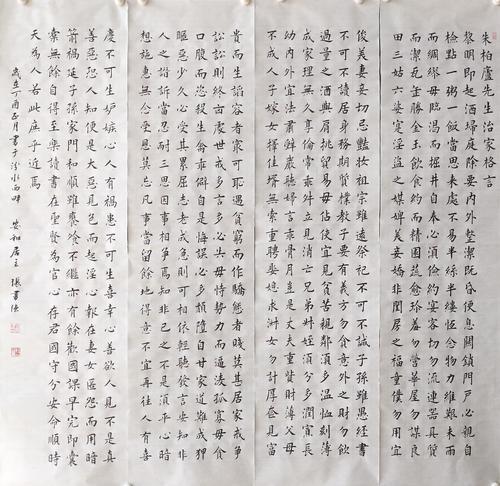 朱柏盧先生治家格言
黎明即起洒埽庭除要内外整潔既昏便息關鎖門户必親自
檢點一粥一飯當思来處不易半絲半縷恆念物力維艱未雨
而綢繆毋臨渴而掘井自奉必須儉約宴客切勿流連器具質
而潔瓦缶勝金玉飲食約而精園蔬愈珍羞勿營華屋勿謀良
田三姑六婆寔淫盜之媒婢美妾嬌非閨房之福童僕勿用宜
俊美妻妾切忌艷妝祖宗雖遠祭祀不可不誠子孫雖愚經書
不可不讀居身務期質樸教子要有義方勿貪意外之財勿飲
過量之酒與肩挑貿易毋佔便宜見貧苦親鄰須多温恤刻薄
成家理無久享倫常乖舛立見消亡兄弟叔姪須分多潤寡長
幼内外宜法肅辭嚴聽婦言乖骨月豈是丈夫重貲財薄父母
不成人子嫁女擇佳壻無索重聘娶媳求淑女勿計厚奩見富
貴而生諂容者寂可耻遇貧窮而作驕態者賤莫甚居家戒爭
訟訟則終凶處世戒多言言多必失毋恃勢力而逼凌孤寡毋貪
口腹而恣殺生禽乖僻自是悔誤必多頹隳自甘家道難成狎
暱惡少久必受其累屈志老成急則可相依輕聽發言安知非
人之譖訴當忍耐三思因事相爭焉知非己之不是須平心暗
想施惠無念受恩莫忘凡事當留餘地得意不宜再往人有喜
慶不可生妒嫉心人有禍患不可生喜幸心善欲人見不是真
善惡恐人知便是大惡見色而起淫心報在妻女匿怨而用暗
箭禍延子孫家門和順雖饔飧不繼亦有餘歡國課早完即囊
橐無餘自得至樂讀書在聖賢為官心存君國守分安命順時
天為人若此庶乎近焉
歲在丁酉正月書于汾水西畔 安和居主張書德